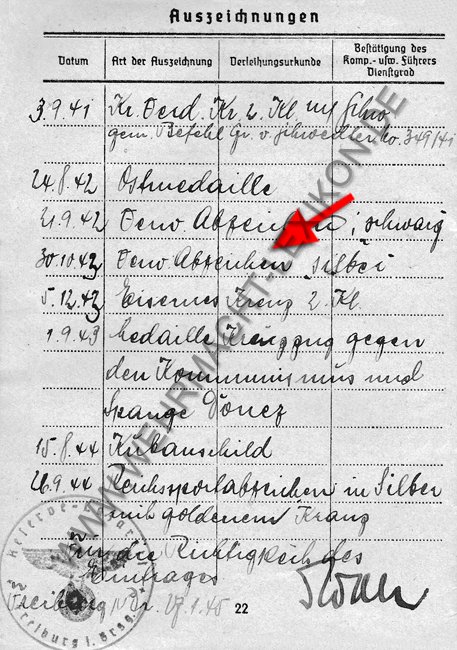 Auszeichnungen
Datum Art der Auszeichnung Verleihungsurkunde Bestätigung des Komp.- usw. Führers Dienstgrad
3.9.41 Kr. Verd. Kr. 2. Kl. mit Schw.
gem. Befehl Gr. v. Schwedler No. 349/41
24.8.42 Ostmedaille
21.9.42 Verw. Abzeichen, schwarz
30.10.42 Verw. Abzeichen silber
5.12.42 Eisernes Kreuz 2. Kl.
1.9.43 Medaille Kreuzzug gegen
den Kommunismus und
Spange Donez
15.8.44 Kubanschild
26.9.44 Reichssportabzeichen in Silber
mit goldenem Kranz
Für die Richtigkeit des
Eintrages
Freiburg Br. 27.1.45
22
WWW.WEHRMACHT-LEXIKON.DE
Freiburg i. Brsg.